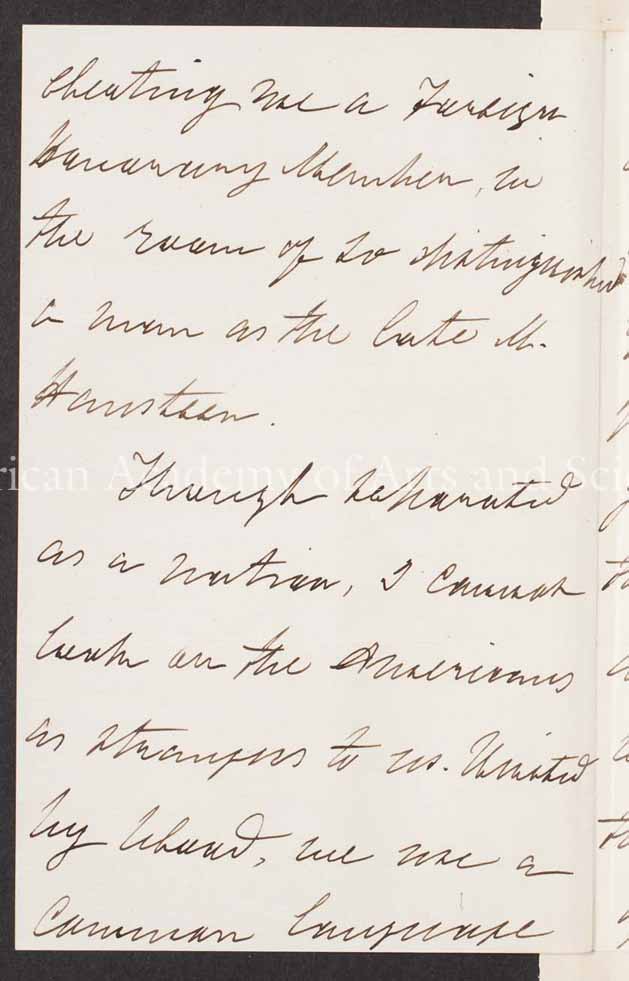 electing me a Foreign
Honorary Member, in
the room of so distinguished
a man as the late M.
Hansteen.
rican Academy of Arts and Sci
Though separated
as a nation, I cannot
look on the Americans
as strangers to us. United
by blood, we use a
common language